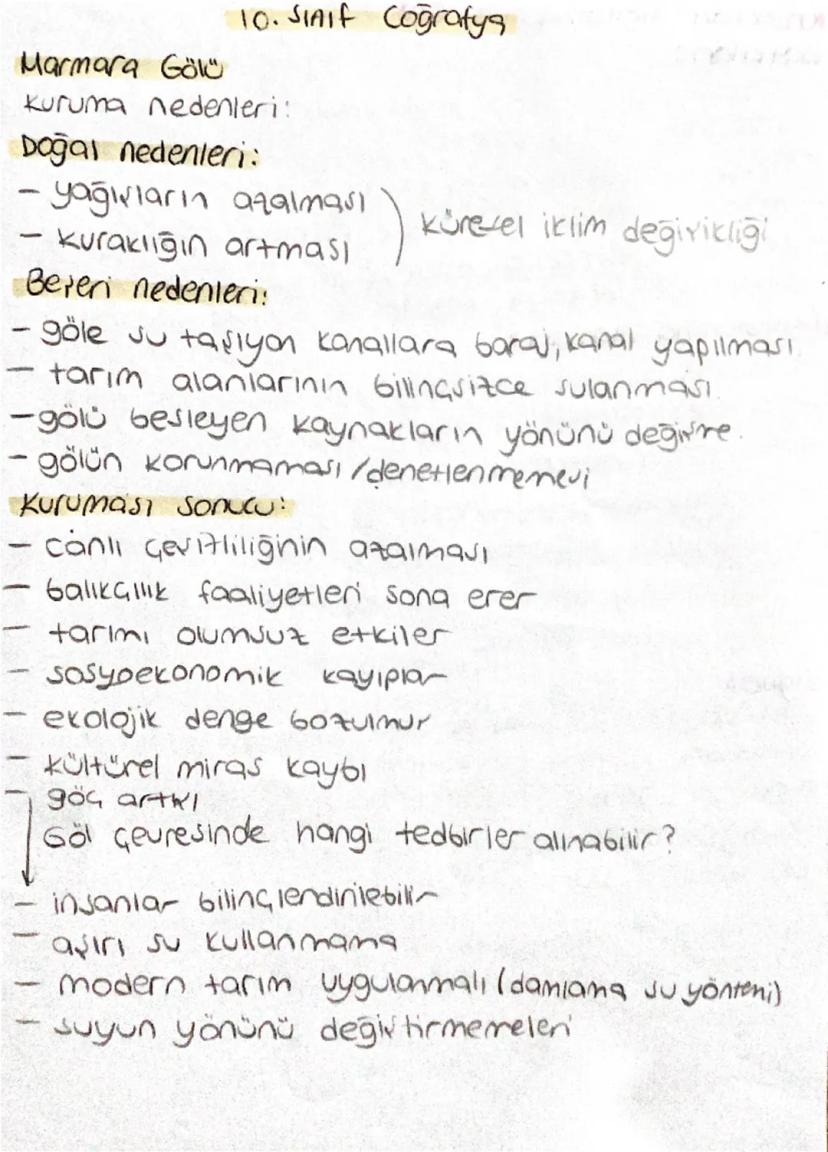 10. Sınıf Coğrafya
Marmara Gölü
Kuruma nedenleri:
Doğal nedenleri:
- yağışların azalması
- kuraklığın artması
küresel iklim değişikliği
Beşeri nedenleri:
- göle su taşıyan kanallara baraj, kanal yapılması.
- tarım alanlarının bilinçsizce sulanması.
- gölü besleyen kaynakların yönünü değişme.
- gölün korunmaması / denetlenmemesi
Kuruması sonucu:
- canlı çeşitliliğinin azalması
- balıkçılık faaliyetleri sona erer
- tarımı olumsuz etkiler
- sosyoekonomik kayıplar
- ekolojik denge bozulmuş
- kültürel miras kaybı
- göç artışı
Göl çevresinde hangi tedbirler alınabilir?
- insanlar bilinçlendirilebilir
- aşırı su kullanmama
- modern tarım uygulanmalı (damlama su yöntemi)
- suyun yönünü değiştirmemeleri